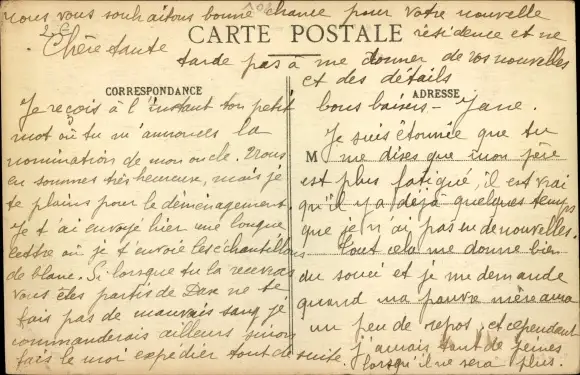 Nous vous souhaitons bonne chance pour votre nouvelle
résidence et ne
CARTE POSTALE
Chère tante
tarde pas à me donner de vos nouvelles
et des détails
CORRESPONDANCE
Je reçois à l'instant ton petit
mot où tu m'annonces la
nomination de mon oncle. Nous
en sommes très heureux, mais je
te plains pour le déménagement.
Je t'ai envoyé hier une longue
lettre où je t'envoie les échantillons
de blanc. Si lorsque tu la recevras
vous êtes partis de Dax ne te
fais pas de mauvais sang je
commanderais ailleurs sinon
fais le moi expédier tout de suite.
ADRESSE
bons baisers - Jane.
Je suis étonnée que tu
M
me dises que mon père
est plus fatigué, il est vrai
qu'il y a déjà quelques temps
que je n'ai pas eu de nouvelles.
Tout cela me donne bien
du souci et je me demande
quand ma pauvre mère aura
un peu de repos, et cependant
j'aurais tant de peines
lorsqu'il ne sera plus.